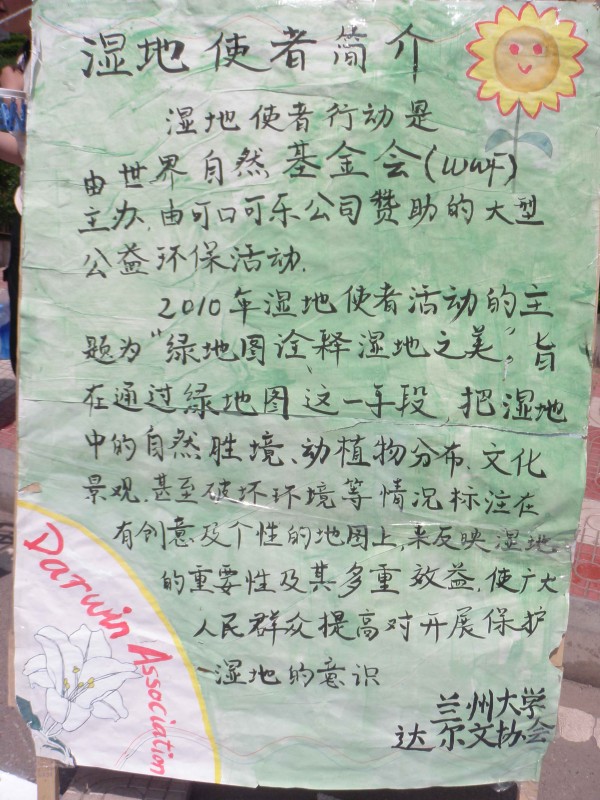 湿地使者简介
湿地使者行动是
由世界自然基金会(WWF)
主办,由可口可乐公司赞助的大型
公益环保活动.
2010年湿地使者活动的主
题为“绿地图诠释湿地之美”,旨
在通过绿地图这一手段,把湿地
中的自然胜境、动植物分布、文化
景观、甚至破坏环境等情况标注在
有创意及个性的地图上,来反映湿地
的重要性及其多重效益,使广大
人民群众提高对开展保护
湿地的意识
兰州大学
达尔文协会
Darwin Association